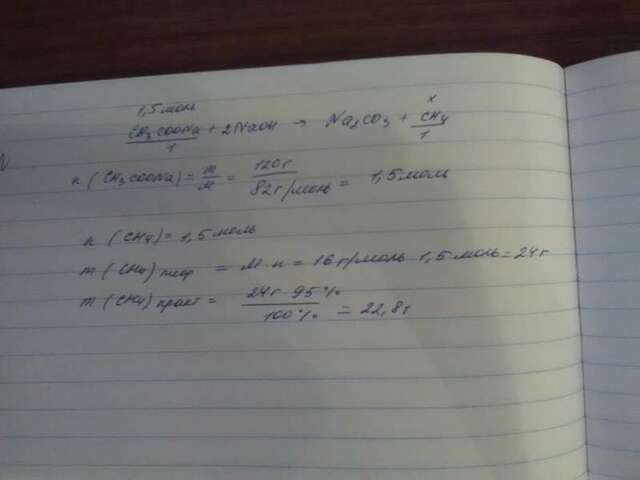 1,5 моль x
CH3COONa + 2NaOH → Na2CO3 + CH4
1 1
n (CH3COONa) = m/M = 120г / 82г/моль = 1,5 моль
n (CH4) = 1,5 моль
m (CH4) теор = M · n = 16 г/моль · 1,5 моль = 24 г
m (CH4) практ = 24г · 95% / 100% = 22,8г